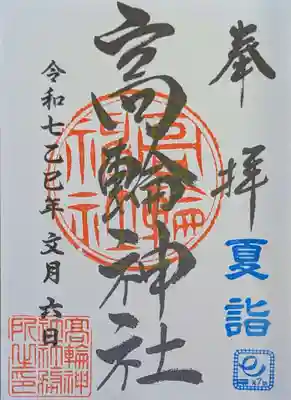 奉拝
夏詣
高輪神社
高輪神社
令和七乙巳年 文月 六日
高輪神社社務所之印